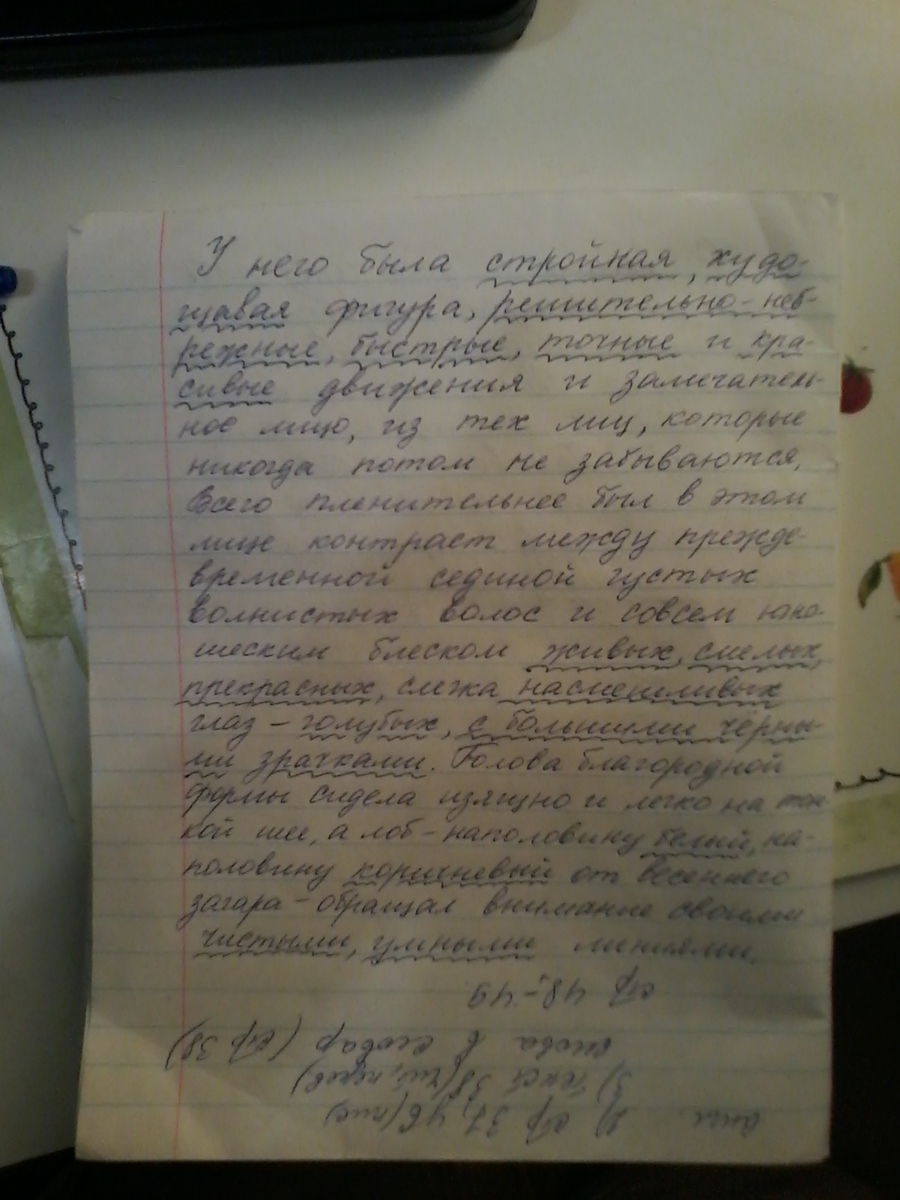 У него была стройная, худо-
щавая фигура, решительно-неб-
режные, быстрые, точные и кра-
сивые движения и замечатель-
ное лицо, из тех лиц, которые
никогда потом не забываются.
Всего пленительнее был в этом
лице контраст между прежде-
временной сединой густых
волнистых волос и совсем юно-
шеским блеском живых, смелых,
прекрасных, слегка насмешливых
глаз - голубых, с большими чёрны-
ми зрачками. Голова благородной
формы сидела изящно и легко на тон-
кой шее, а лоб - наполовину белый, на-
половину коричневый от весеннего
загара - обращал внимание своими
чистыми, умными линиями.
англ.
стр 37, 4б (пис)
3) текст 38 (чит, перев)
слова в словар (стр 38)
стр 48-49